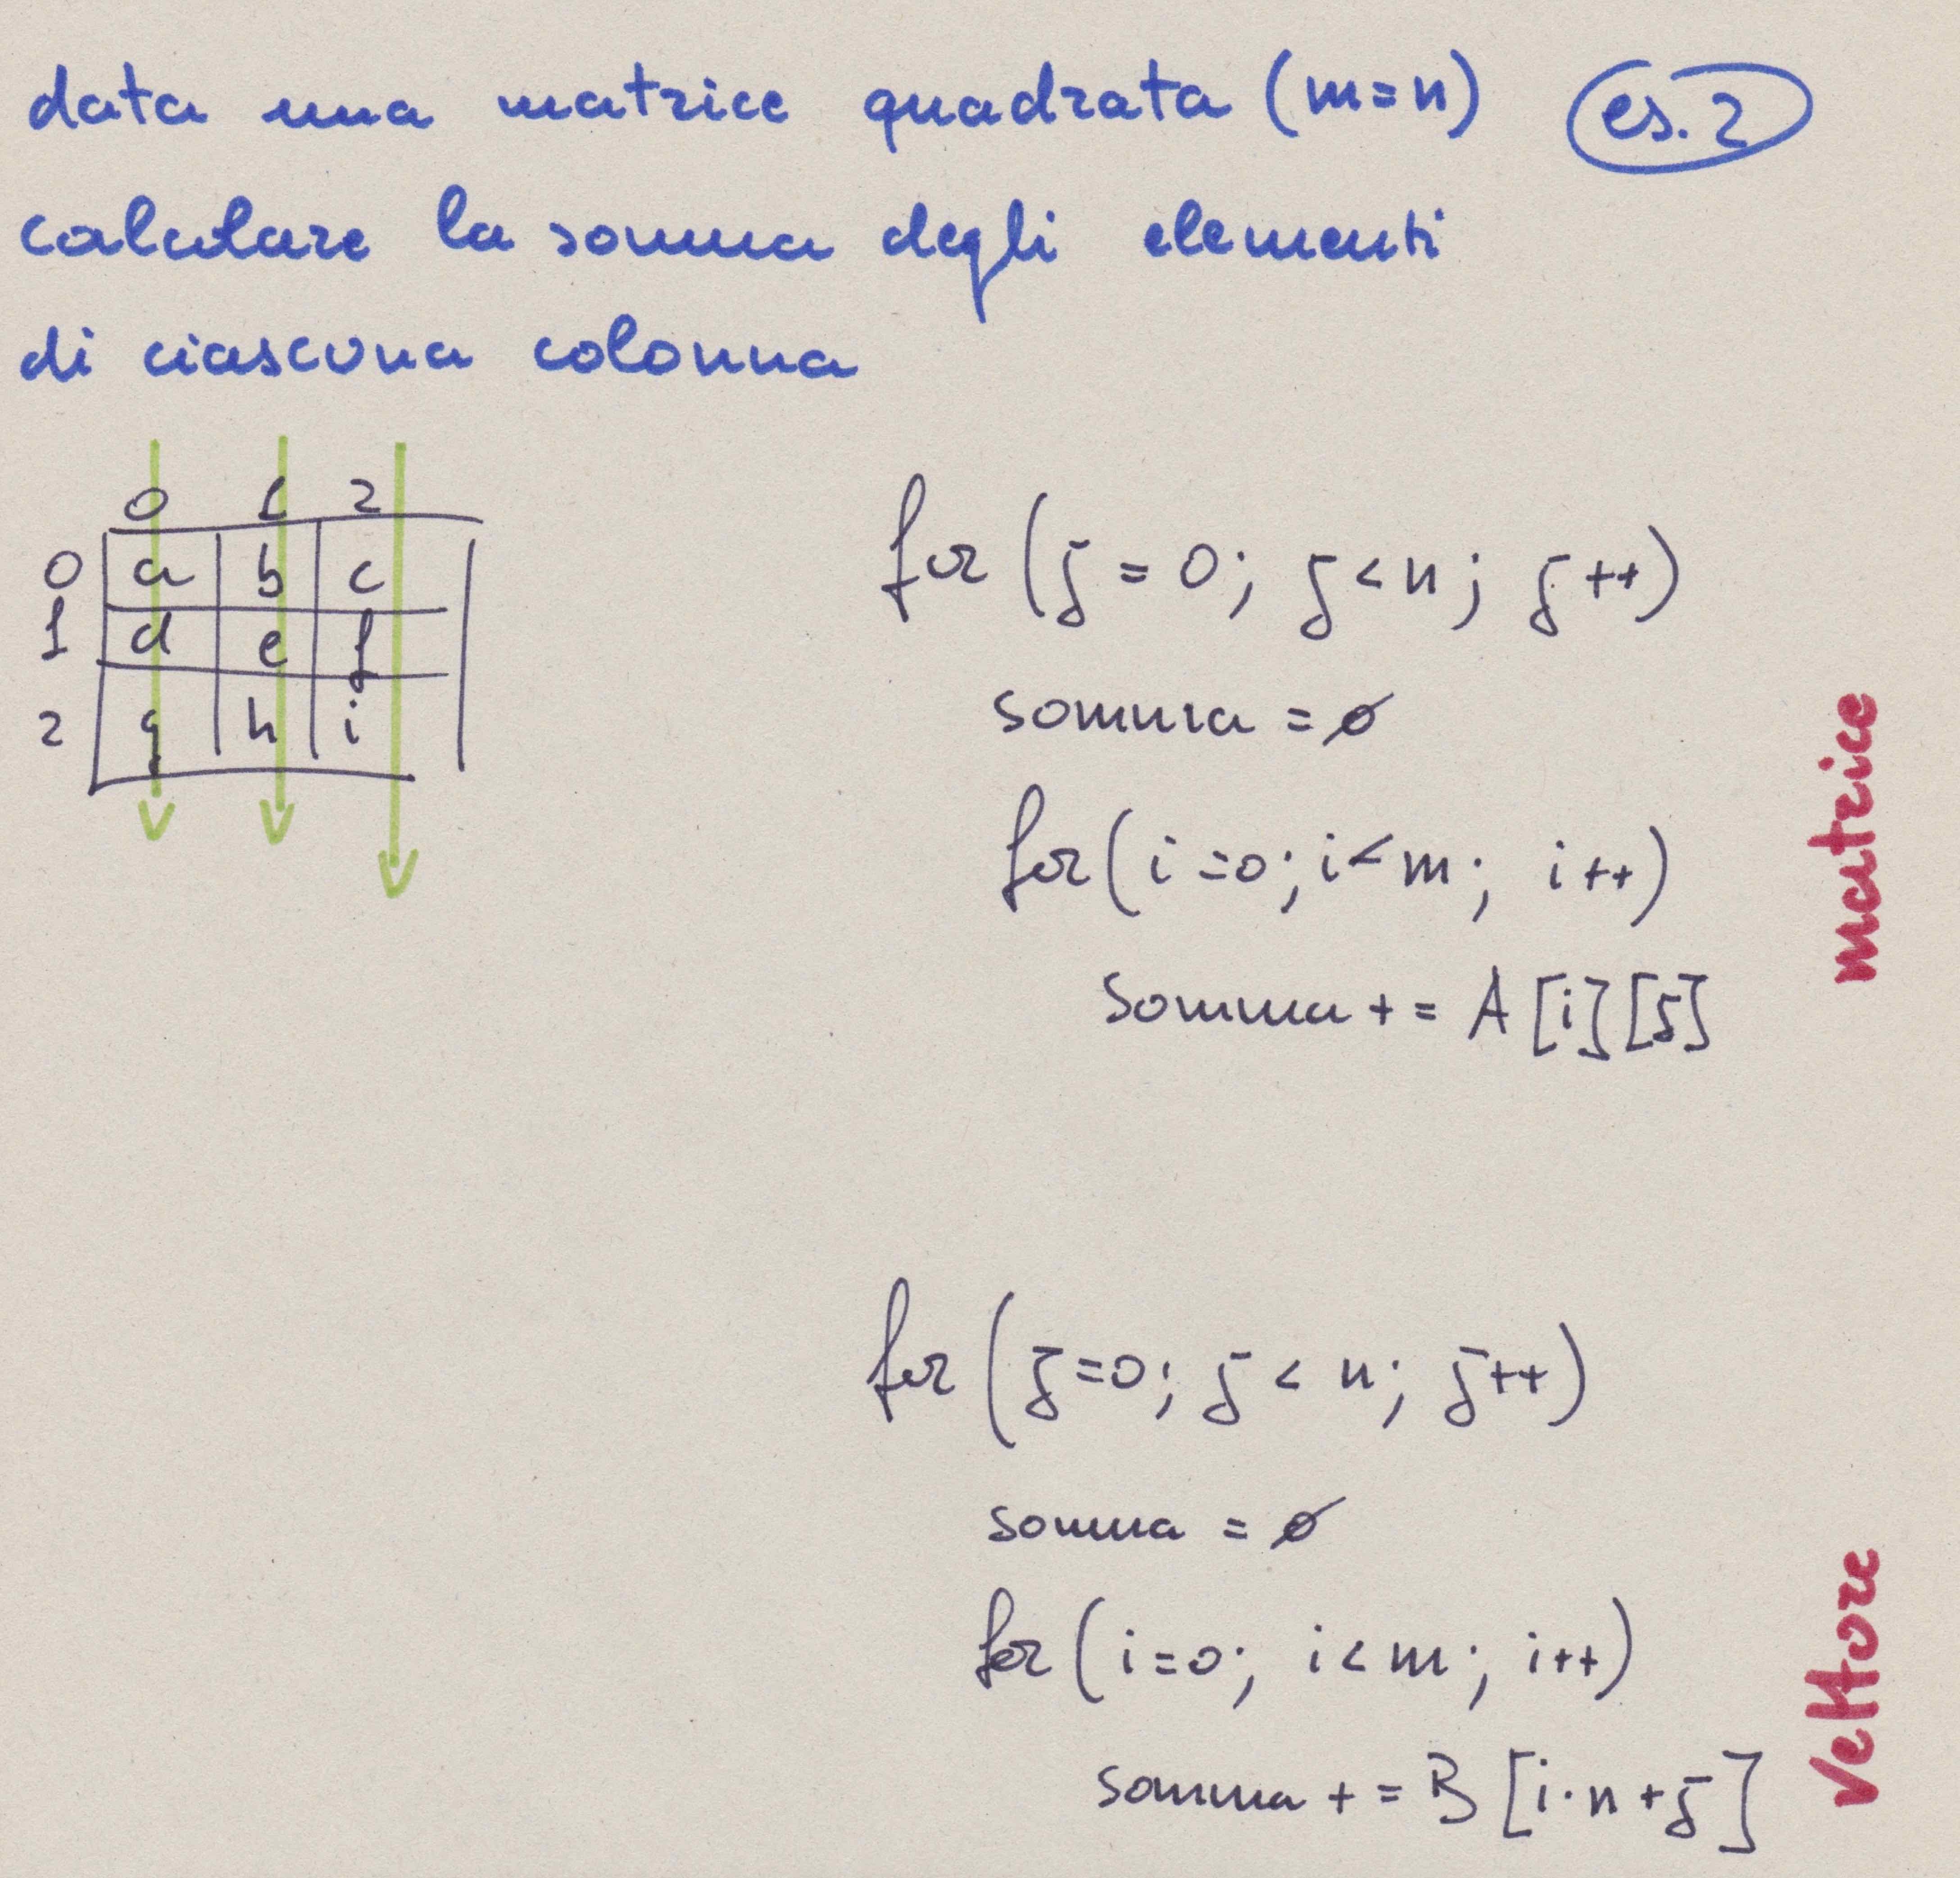 data una matrice quadrata (m=n) es. 2
calcolare la somma degli elementi
di ciascuna colonna
0 1 2
0 a b c
1 d e f
2 g h i
for (j = 0; j < n; j++)
somma = ø
for (i = 0; i < m; i++)
somma += A[i][j]
matrice
for (j=0; j < n; j++)
somma = ø
for (i=0; i < m; i++)
somma += B[i·n+j]
vettore